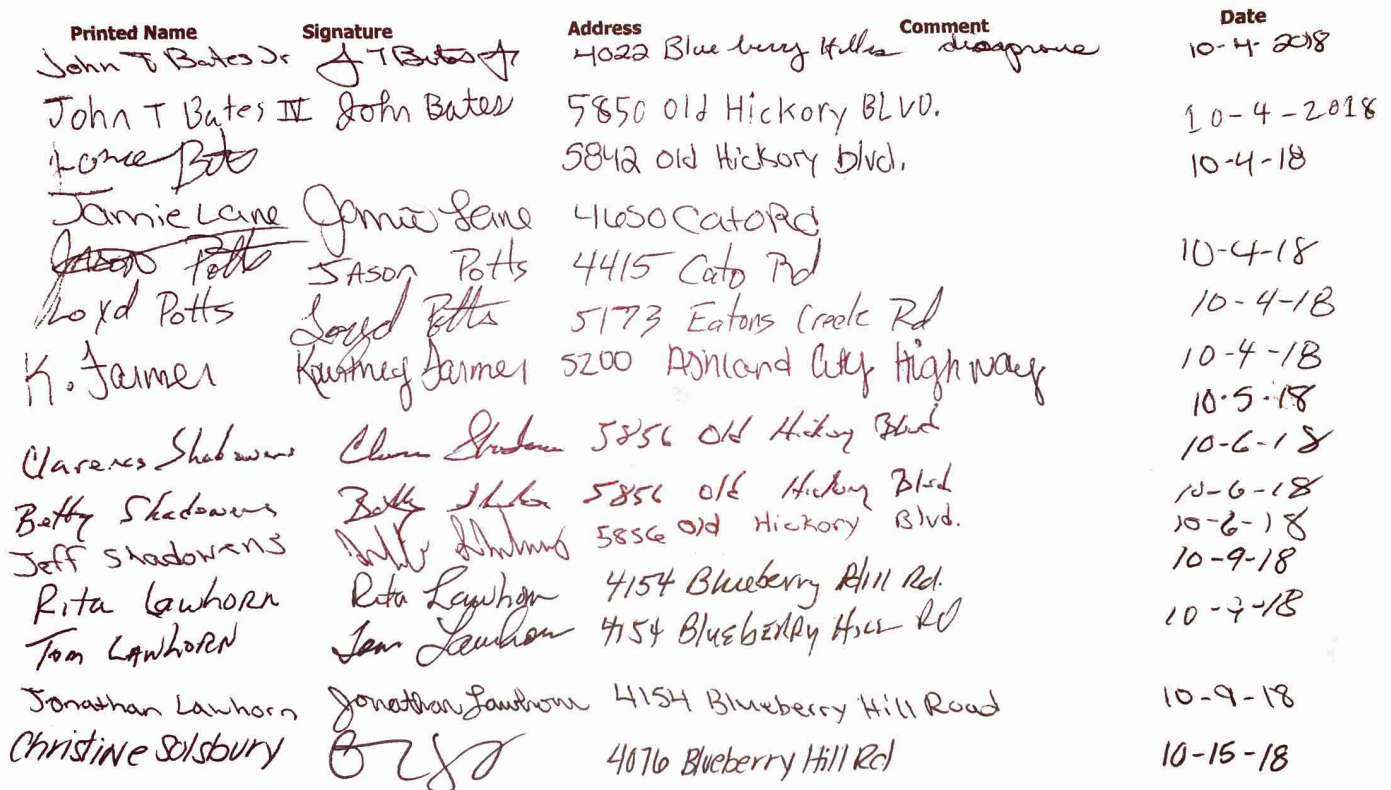 Printed Name Signature Address Comment Date
John T Bates Jr J T Bates Jr 4022 Blue berry Hills disaprove 10-4-2018
John T Bates IV John Bates 5850 Old Hickory BLVD. 10-4-2018
5842 Old Hickory blvd. 10-4-18
Jamie Lane Jamie Lane 4650 Cato Rd
Jason Potts JASON Potts 4415 Cato Rd 10-4-18
Loyd Potts Loyd Potts 5173 Eatons Creek Rd 10-4-18
K. Farmer Kourtney Farmer 5200 Ashland City Highway 10-4-18
10-5-18
Clarence Shadowens 5856 Old Hickory Blvd 10-6-18
Betty Shadowens Betty 5856 old Hickory Blvd 10-6-18
Jeff Shadowens 5856 Old Hickory Blvd. 10-6-18
Rita Lawhorn Rita Lawhorn 4154 Blueberry Hill Rd. 10-9-18
Tom LAWHORN Tom Lawhorn 4154 BluebERRy HILL RD 10-9-18
Jonathan Lawhorn Jonathan Lawhorn 4154 Blueberry Hill Road 10-9-18
Christine Solsbury 4076 Blueberry Hill Rd 10-15-18